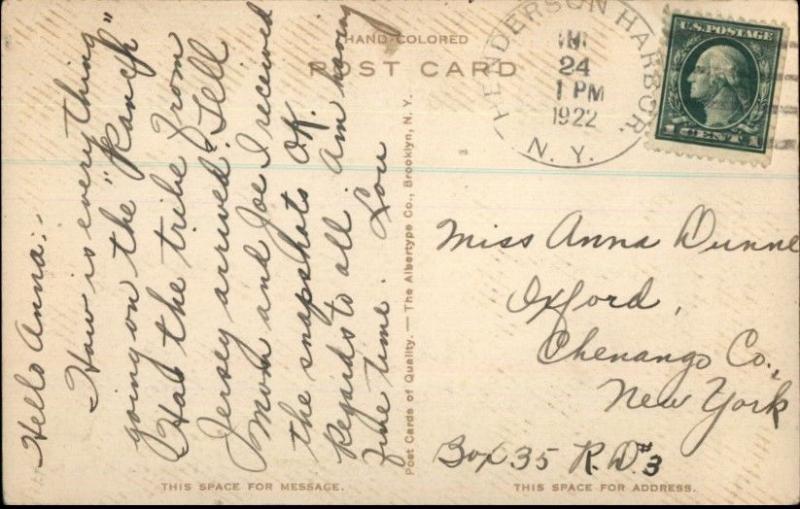 HAND-COLORED
POST CARD
HENDERSON HARBOR.
24
1 PM
1922
N. Y.
U.S. POSTAGE
1 CENT 1
Hello Anna:-
How is everything
going on the "Ranch"
Has the tribe from
Jersey arrived? Tell
Mom and Joe I received
the snapshots O.K.
Regards to all. Am having
fine time. Lou
Post Cards of Quality. — The Albertype Co., Brooklyn, N. Y.
Miss Anna Dunne
Oxford,
Chenango Co.,
New York
Box 35 R.D. #3
THIS SPACE FOR MESSAGE.
THIS SPACE FOR ADDRESS.